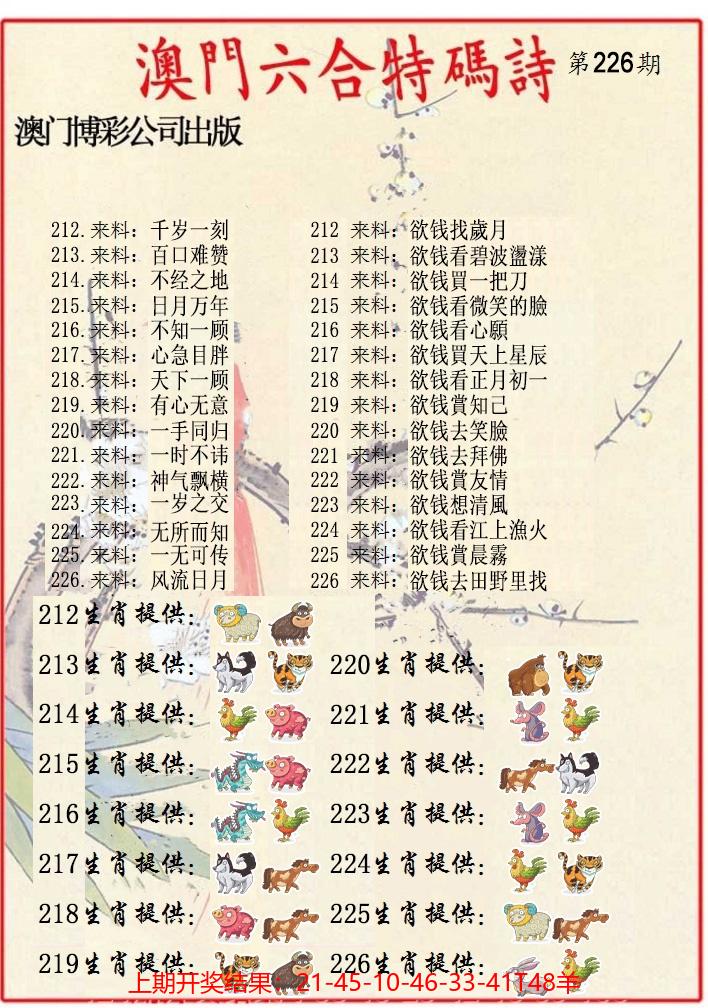 澳門六合特碼詩 第226期
澳门博彩公司出版
212.来料：千岁一刻
213.来料：百口难赞
214.来料：不经之地
215.来料：日月万年
216.来料：不知一顾
217.来料：心急目胖
218.来料：天下一顾
219.来料：有心无意
220.来料：一手同归
221.来料：一时不讳
222.来料：神气飘横
223.来料：一岁之交
224.来料：无所而知
225.来料：一无可传
226.来料：风流日月
212 来料：欲钱找歲月
213 来料：欲钱看碧波盪漾
214 来料：欲钱買一把刀
215 来料：欲钱看微笑的臉
216 来料：欲钱看心願
217 来料：欲钱買天上星辰
218 来料：欲钱看正月初一
219 来料：欲钱賞知己
220 来料：欲钱去笑臉
221 来料：欲钱去拜佛
222 来料：欲钱賞友情
223 来料：欲钱想清風
224 来料：欲钱看江上漁火
225 来料：欲钱賞晨霧
226 来料：欲钱去田野里找
212生肖提供：
213生肖提供：
214生肖提供：
215生肖提供：
216生肖提供：
217生肖提供：
218生肖提供：
219生肖提供：
220生肖提供：
221生肖提供：
222生肖提供：
223生肖提供：
224生肖提供：
225生肖提供：
226生肖提供：
上期开奖结果：21-45-10-46-33-41T48羊